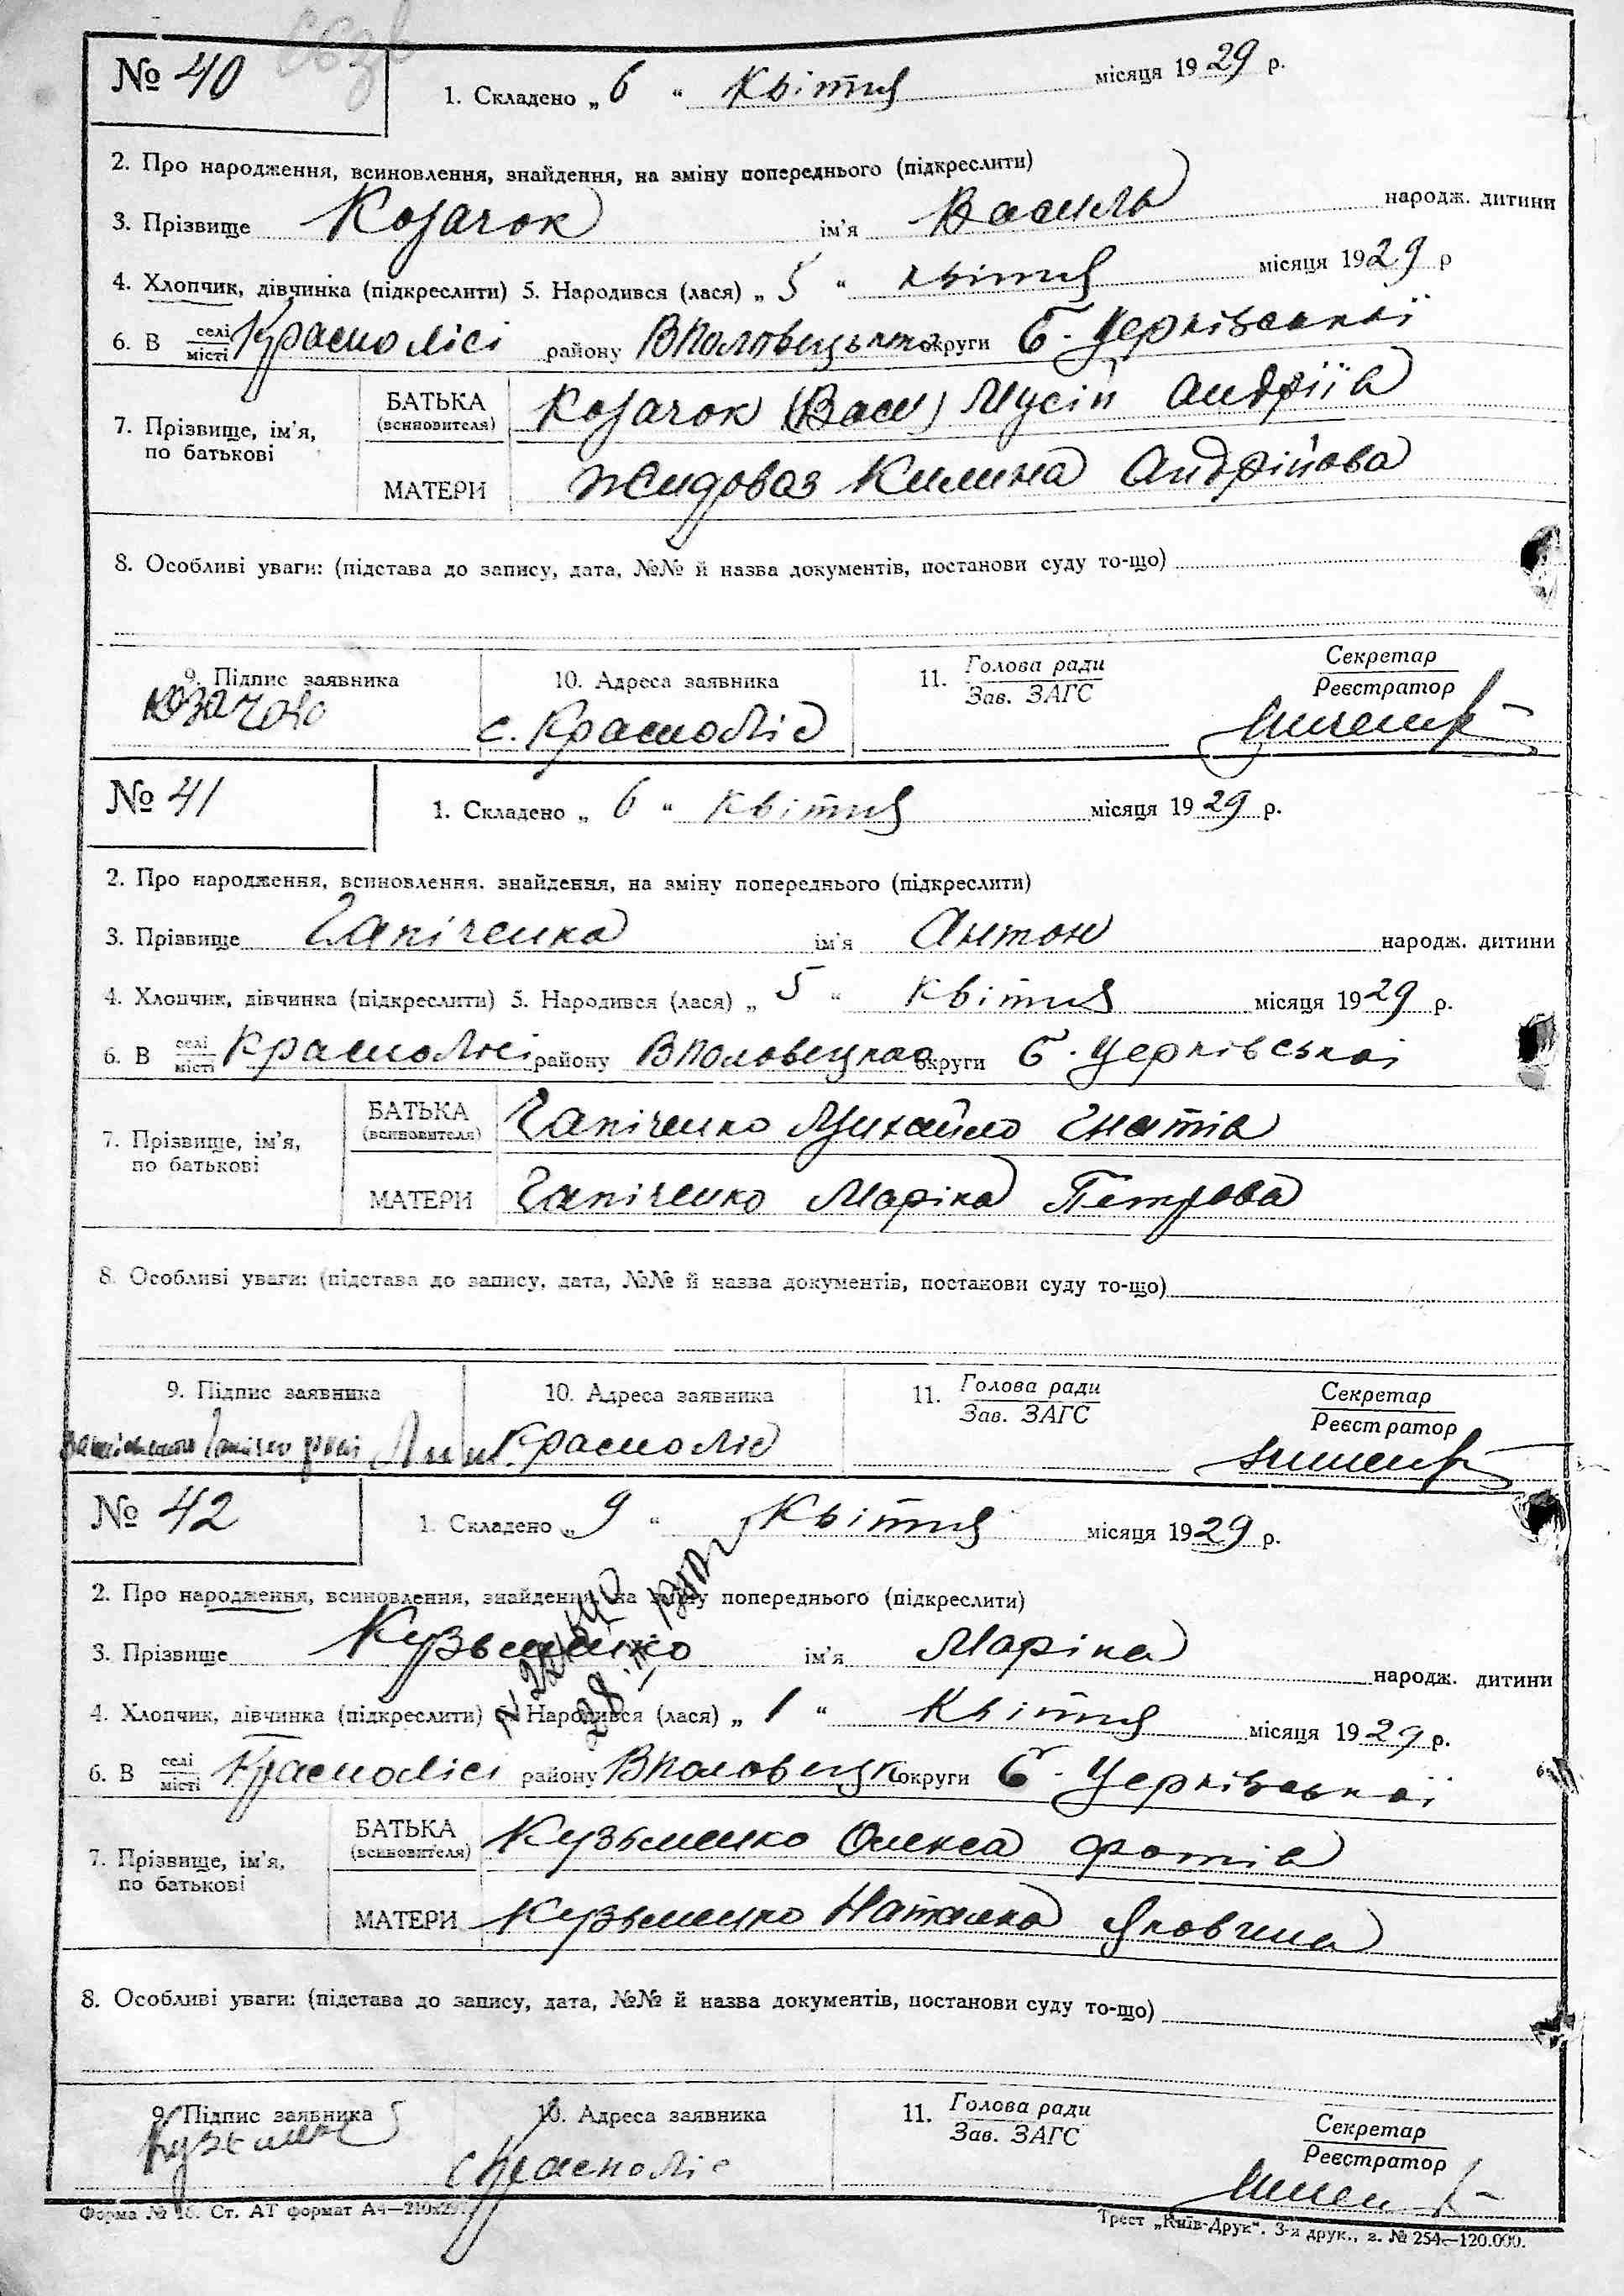 № 40
1. Складено „ 6 “ Квітня місяця 1929 р.
2. Про народження, всиновлення, знайдення, на зміну попереднього (підкреслити)
3. Прізвище Козачок ім'я Василь народж. дитини
4. Хлопчик, дівчинка (підкреслити) 5. Народився (лася) „ 5 “ квітня місяця 1929 р
6. В селі місті Краснолісі району ВПоловецького округи Б. Церківської
7. Прізвище, ім'я, по батькові
БАТЬКА (всиновителя) Козачок (Вас) Мусій Андріїв
МАТЕРИ Жидоваз Килина Андрійова
8. Особливі уваги: (підстава до запису, дата, №№ й назва документів, постанови суду то-що)
9. Підпис заявника
10. Адреса заявника
11. Голова ради
Зав. ЗАГС
Секретар
Реєстратор
с. Красноліс
№ 41
1. Складено „ 6 “ Квітня місяця 1929 р.
2. Про народження, всиновлення. знайдення, на зміну попереднього (підкреслити)
3. Прізвище Гапіченко ім'я Антон народж. дитини
4. Хлопчик, дівчинка (підкреслити) 5. Народився (лася) „ 5 “ Квітня місяця 1929 р.
6. В селі місті Краснолісі району ВПоловецько округи Б. Церківської
7. Прізвище, ім'я, по батькові
БАТЬКА (всиновителя) Гапіченко Михайло Гнатів
МАТЕРИ Гапіченко Маріка Петрова
8. Особливі уваги: (підстава до запису, дата, №№ й назва документів, постанови суду то-що)
9. Підпис заявника
10. Адреса заявника
11. Голова ради
Зав. ЗАГС
Секретар
Реєстратор
Красноліс
№ 42
1. Складено „ 9 “ Квітня місяця 1929 р.
2. Про народження, всиновлення, знайдення, на зміну попереднього (підкреслити)
3. Прізвище Кузьменко ім'я Маріка народж. дитини
4. Хлопчик, дівчинка (підкреслити) 5. Народився (лася) „ 1 “ Квітня місяця 1929 р.
6. В селі місті Краснолісі району ВПоловецьк округи Б. Церківської
7. Прізвище, ім'я, по батькові
БАТЬКА (всиновителя) Кузьменко Олекса Фотів
МАТЕРИ Кузьменко Наталка Яковина
8. Особливі уваги: (підстава до запису, дата, №№ й назва документів, постанови суду то-що)
9. Підпис заявника
10. Адреса заявника
11. Голова ради
Зав. ЗАГС
Секретар
Реєстратор
с Красноліс
Форма № 16. Ст. АТ формат А4—210х297
Трест „Київ-Друк“. 3-я друк., з. № 254—120.000.